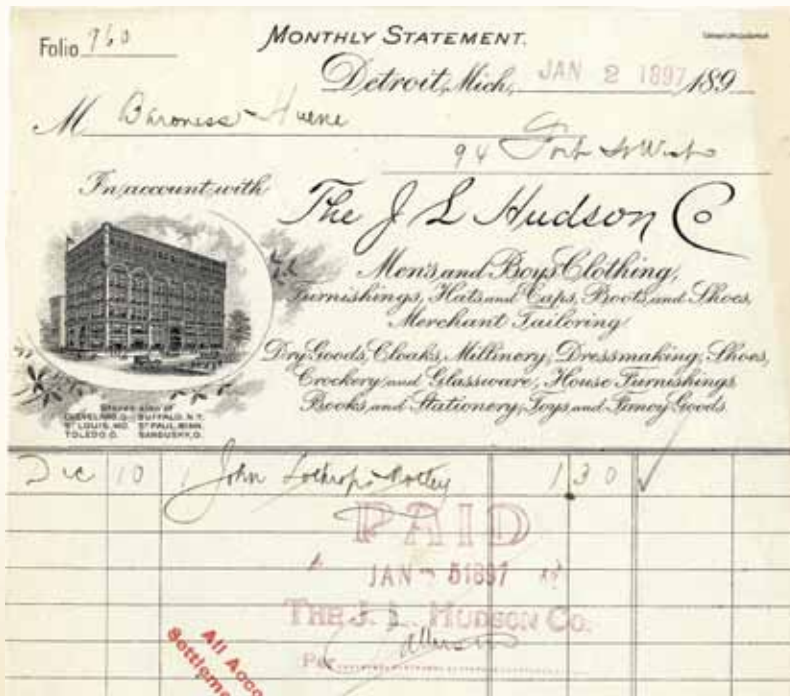 Folio 960
MONTHLY STATEMENT.
Detroit, Mich, JAN 2 1897 189
M Baroness Huene
94 Fort St West
In account with
The J L Hudson Co
Men's and Boys Clothing,
Furnishings, Hats and Caps, Boots and Shoes,
Merchant Tailoring
Dry Goods, Cloaks, Millinery, Dressmaking, Shoes,
Crockery and Glassware, House Furnishings
Books and Stationery, Toys and Fancy Goods.
Stores also at
CLEVELAND, O. BUFFALO, N.Y.
ST LOUIS, MO. ST PAUL, MINN.
TOLEDO, O. SANDUSKY, O.
Dec 10 1 John Lothrop Motley 1 30
PAID
JAN 1897
THE J. L. HUDSON CO.
Per
All Acco
Settleme